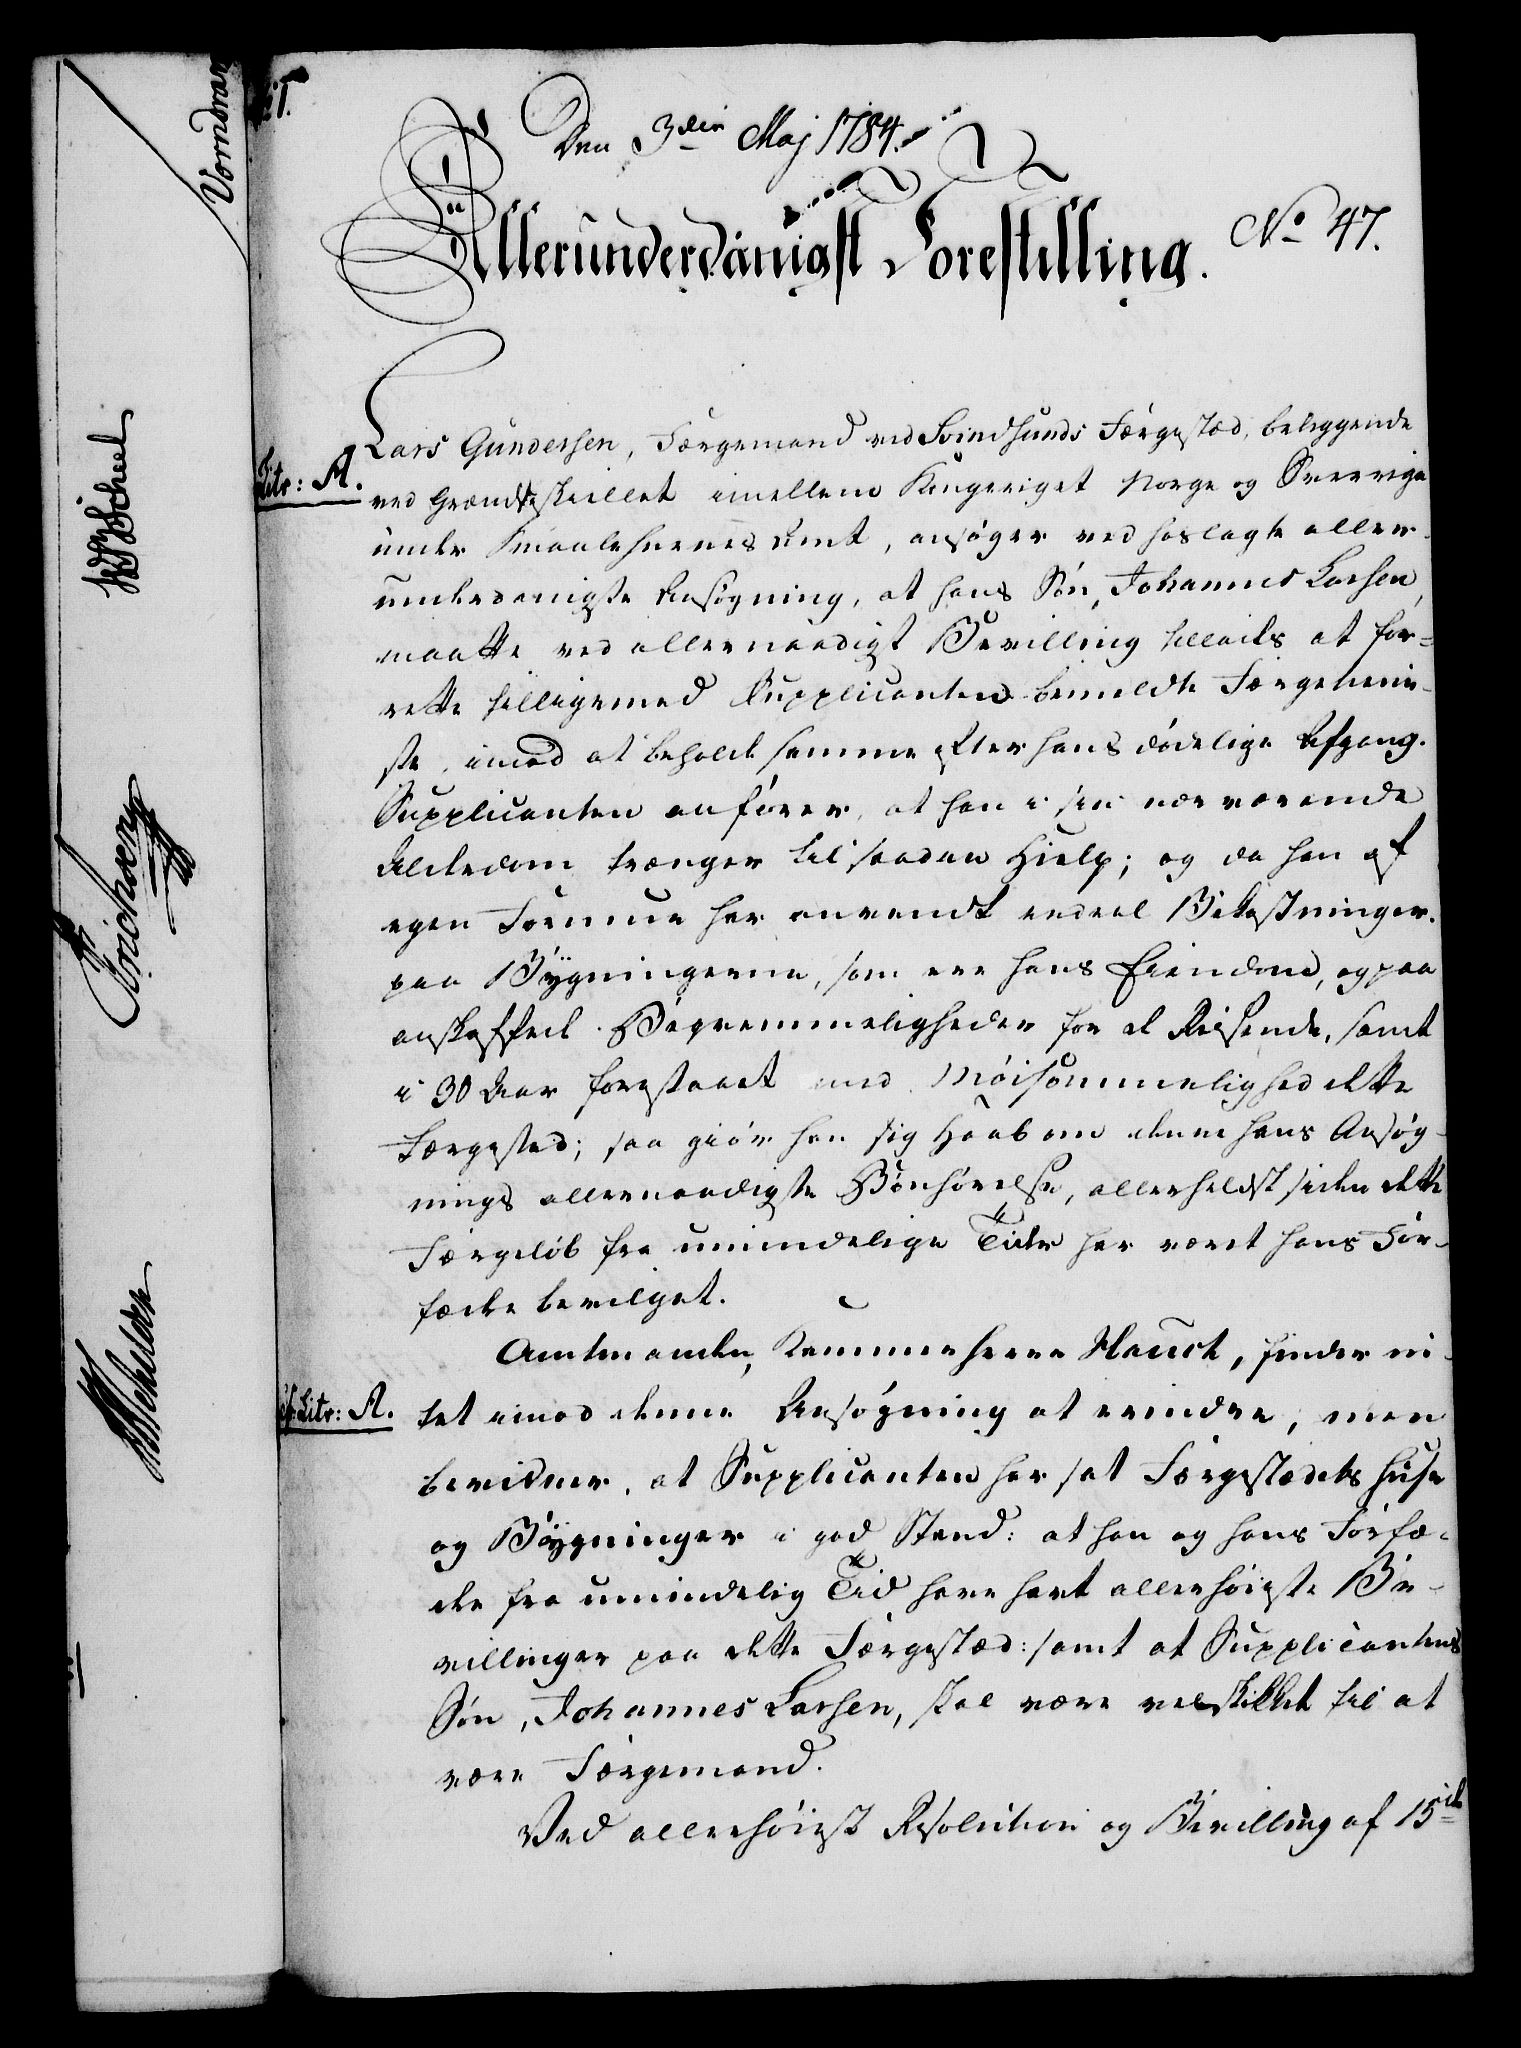 Den 3die Maj 1784.
Allerunderdanigst Forestilling.
No 47.
Lars Gundersen, Færgemand ved Svindsunds Færgestæd, beliggende
Litr: A.
ved Grændseskiellet imellem Kongeriget Norge og Sverrige
under Smaalehnenes Amt, ansøger ved hoslagte aller-
underdanigste Ansøgning, at hans Søn, Johannes Larsen,
maatte ved allernaadigst Bevilling tillades at for-
rette tilligemed Supplicanten bemeldte Færgetieni-
ste, imod at beholde samme efter hans dødelige Afgang.
Supplicanten anfører, at han i sin nærværende
Alderdom trænger til saadan Hielp; og da han af
egen Formue har anvendt endeel Bekostninger
paa Bygningerne, som ere hans Eiendom, og paa
anskaffede Beqvemmeligheder for de Reisende, samt
i 30 Aar forestaaet med Møisommelighed dette
Færgested; saa giør han sig Haab om denne hans Ansøg-
nings allernaadigste Bønhørelse, allerheldst siden dette
Færgeløb fra umindelige Tider har været hans For-
fædre bevilget.
Amtmanden, Kammerherre Hauch, finder in-
Litr: A.
tet imod denne Ansøgning at erindre, men
bevidner, at Supplicanten har sat Færgestædets Huse
og Bygninger i god Stand: at han og hans Forfæ-
dre fra umindelig Tid have havt allerhøieste Be-
villinger paa dette Færgestæd: samt at Supplicantens
Søn, Johannes Larsen, skal være velskikket til at
være Færgemand.
Ved allerhøiest Resolution og Bevilling af 15de